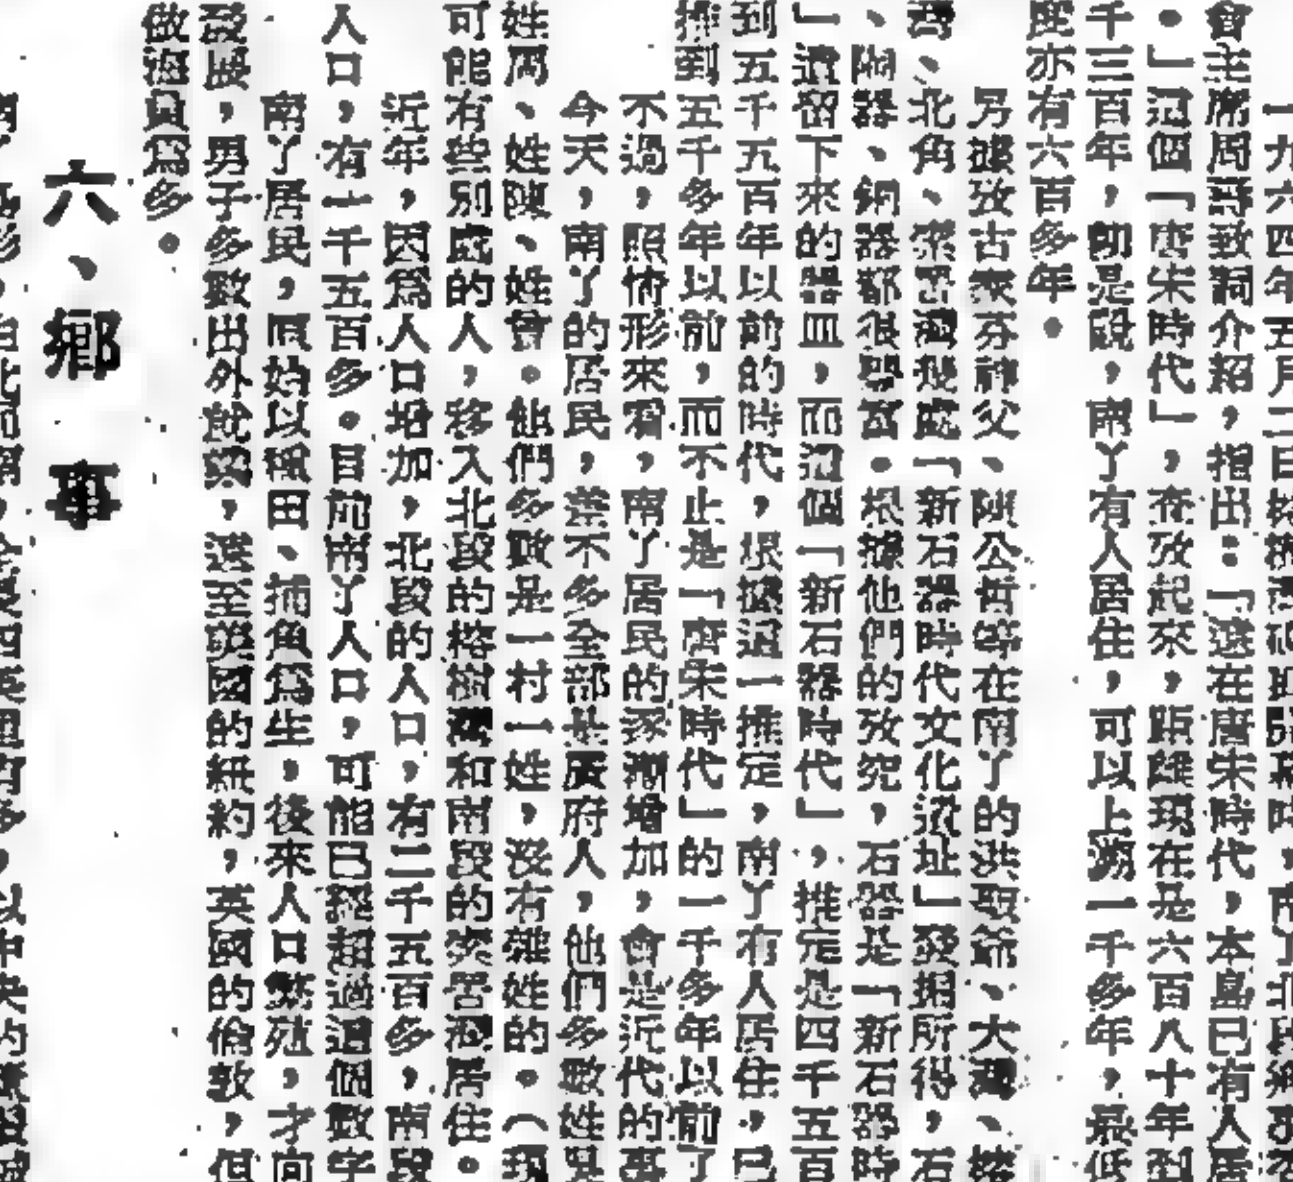 一九六四年五月二日
會主席周 致詞介紹，指出：「遠在唐宋時代，本島已有人居
。」這個「唐宋時代」， 攷起來，距離現在是六百八十年到
千三百年，卽是說，南丫有人居住，可以上溯一千多年，最低
度亦有六百多年。
另據攷古家芬神父、陳公哲等在南丫的洪聖爺、大灣、
灣、北角、 灣 處「新石器時代文化遺址」發掘所得，石
、陶器、銅器都很豐富。根據他們的攷究，石器是「新石器時
」遺留下來的器皿，而這個「新石器時代」，推定是四千五百
到五千五百年以前的時代，根據這一推定，南丫有人居住，已
推到五千多年以前，而不止是「唐宋時代」的一千多年以前了
不過，照情形來看，南丫居民的逐漸增加，會是近代的事
今天，南丫的居民，差不多全部是廣府人，他們多數姓
姓周、姓陳、姓曾。他們多數是一村一姓，沒有雜姓的。（現
可能有些別處的人，移入北段的榕樹灣和南段的索罟灣居住。
近年，因爲人口增加，北段的人口，有二千五百多，南段
人口，有一千五百多。目前南丫人口，可能已經超過這個數字
南丫居民，原始以種田、捕魚爲生，後來人口繁殖，才向
發展，男子多數出外就業，遠至美國的紐約，英國的倫敦，但
做海員爲多。
六、鄉事